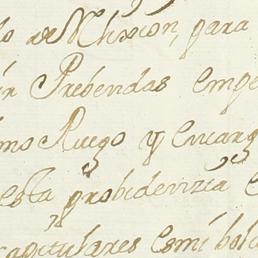 lo de Mexicon, para
Prebendas empe
mo Ruego y encarg
esta probidenzia
capitulares